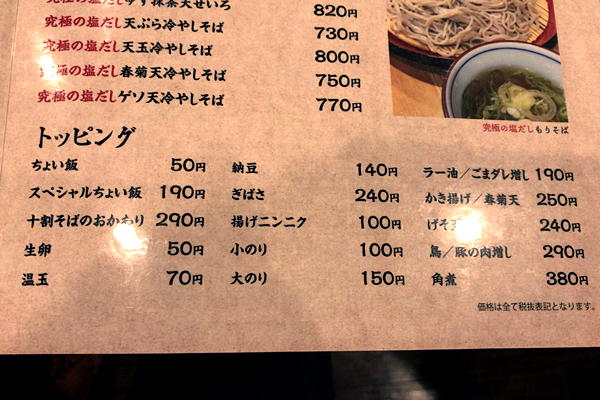 究極の塩だしゆず抹茶天せいろ 820円
究極の塩だし天ぷら冷やしそば 730円
究極の塩だし天玉冷やしそば 800円
究極の塩だし春菊天冷やしそば 750円
究極の塩だしゲソ天冷やしそば 770円
究極の塩だしもりそば
トッピング
ちょい飯 50円
スペシャルちょい飯 190円
十割そばのおかわり 290円
生卵 50円
温玉 70円
納豆 140円
ぎばさ 240円
揚げニンニク 100円
小のり 100円
大のり 150円
ラー油/ごまダレ増し 190円
かき揚げ/春菊天 250円
げそ天 240円
鳥/豚の肉増し 290円
角煮 380円
価格は全て税抜表記となります。